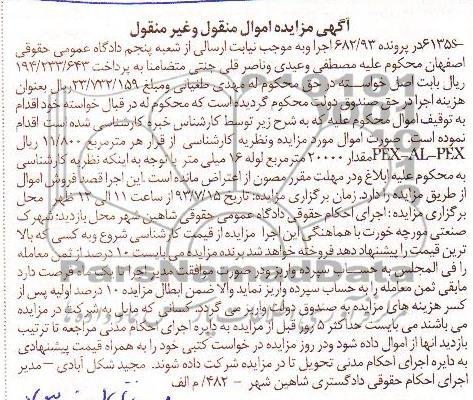 آگهی مزایده اموال منقول وغیر منقول
۶۱۳۵۶در پرونده ۶۸۲/۹۳ اجرا وبه موجب نیابت ارسالی از شعبه پنجم دادگاه عمومی حقوقی
اصفهان محکوم علیه مصطفی وعیدی وناصر قلی جنتی متضامنا به پرداخت ۱۹۴/۲۳۳/۶۴۳
ریال بابت اصل خواسته در حق محکوم له مهدی حلفیانی ومبلغ ۲۳/۷۳۲/۱۵۹ریال بعنوان
هزینه اجرا در حق صندوق دولت محکوم گردیده است که محکوم له در قبال خواسته خود اقدام
به توقیف اموال محکوم علیه که به شرح زیر توسط کارشناس خبره کارشناسی شده است اقدام
نموده است. صورت اموال مورد مزایده ونظریه کارشناسی از قرار هر مترمربع ۱۱/۸۰۰ ریال
PEX-AL-PEXمقدار ۲۰۰۰۰ مترمربع لوله ۱۶ میلی متر با توجه به اینکه نظریه کارشناسی
به محکوم علیه ابلاغ ودر مهلت مقرر مصون از اعتراض مانده است. این اجرا قصد فروش اموال
از طریق مزایده را دارد. زمان برگزاری مزایده: تاریخ ۹۳/۷/۱۵ از ساعت ۱۱ الی ۱۲ ظهر محل
برگزاری مزایده: اجرای احکام حقوقی دادگاه عمومی حقوقی شاهین شهر محل بازدید: شهرک
صنعتی مورچه خورت با هماهنگی این اجرا مزایده از قیمت کارشناسی شروع وبه کسی که بالا
ترین قیمت را پیشنهاد دهد فروخته خواهد شد برنده مزایده می بایست ۱۰ درصد از ثمن معامله
را فی المجلس به حساب سپرده واریز ودر صورت موافقت مدیر اجرا تا یک ماه فرصت دارد
مابقی ثمن معامله را به حساب سپرده واریز نماید والا ضمن ابطال مزایده ۱۰ درصد اولیه پس از
کسر هزینه های مزایده به صندوق دولت واریز می گردد. کسانی که مایل به شرکت در مزایده
می باشند می بایست حداکثر ۵ روز قبل از مزایده به دایره اجرای احکام مدنی مراجعه تا ترتیب
بازدید آنها از اموال داده شود ودر روز مزایده در خواست کتبی خود را به همراه قیمت پیشنهادی
به دایره اجرای احکام مدنی تحویل تا در مزایده شرکت داده شوند. مجید شکل آبادی – مدیر
اجرای احکام حقوقی دادگستری شاهین شهر – ۴۸۲/ م الف